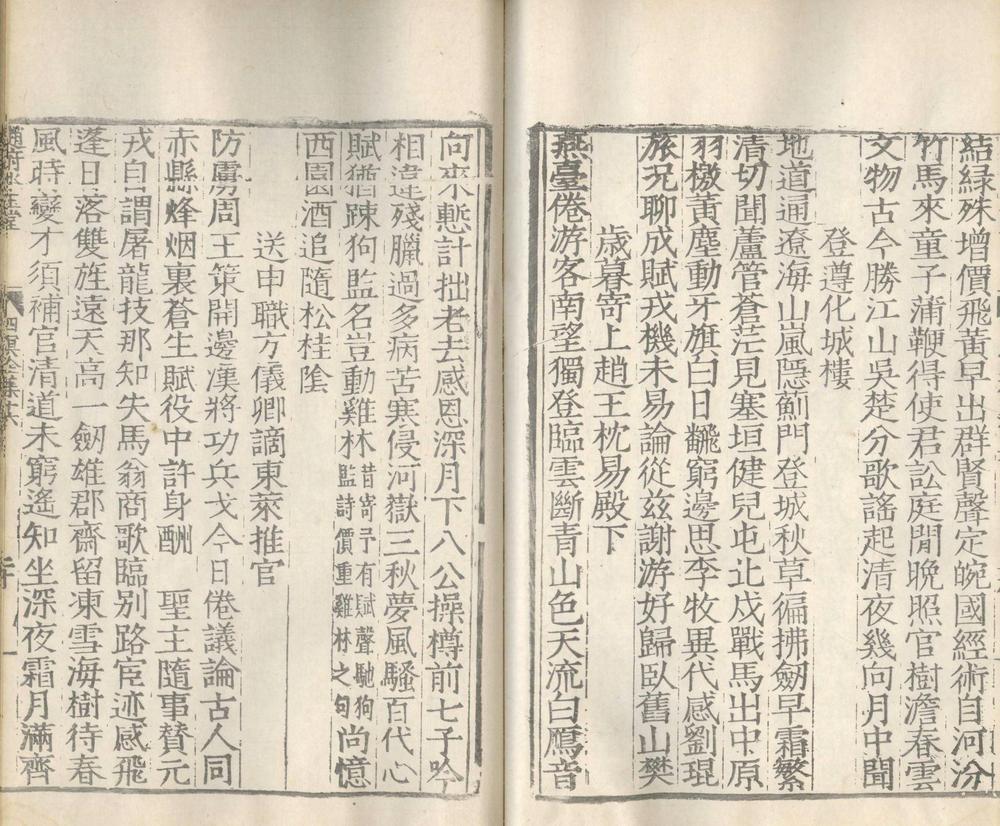 結緑殊增價飛黃早出群賢聲定皖國經術自河汾
竹馬來童子蒲鞭得使君訟庭閒晩照官樹澹春雲
文物古今勝江山吳楚分歌謠起清夜幾向月中聞
登遵化城樓
地道通遼海山嵐隱薊門登城秋草徧拂劒早霜繁
清切聞蘆管蒼茫見塞垣健兒屯北戍戰馬出中原
羽檄黃塵動牙旗白日飜窮邊思李牧異代感劉琨
旅况聊成賦戎機未易論從兹謝游好歸臥舊山樊
歲暮寄上趙王枕易殿下
燕臺倦游客南望獨登臨雲斷青山色天流白鴈音
向來慙計拙老去感恩深月下八公操樽前七子吟
相違殘臘過多病苦寒侵河嶽三秋夢風騷百代心
賦猶踈狗監名豈動雞林昔寄予有賦聲馳狗監詩價重雞林之句尚憶
西園酒追隨松桂隂
送申職方儀卿謫東萊推官
防虜周王策開邊漢將功兵戈今日倦議論古人同
赤縣烽烟裏蒼生賦役中許身酬　聖主隨事賛元
戎自謂屠龍技那知失馬翁商歌臨别路宦迹感飛
蓬日落雙旌遠天高一劒雄郡齋留凍雪海樹待春
風時變才須補官清道未窮遙知坐深夜霜月滿齊